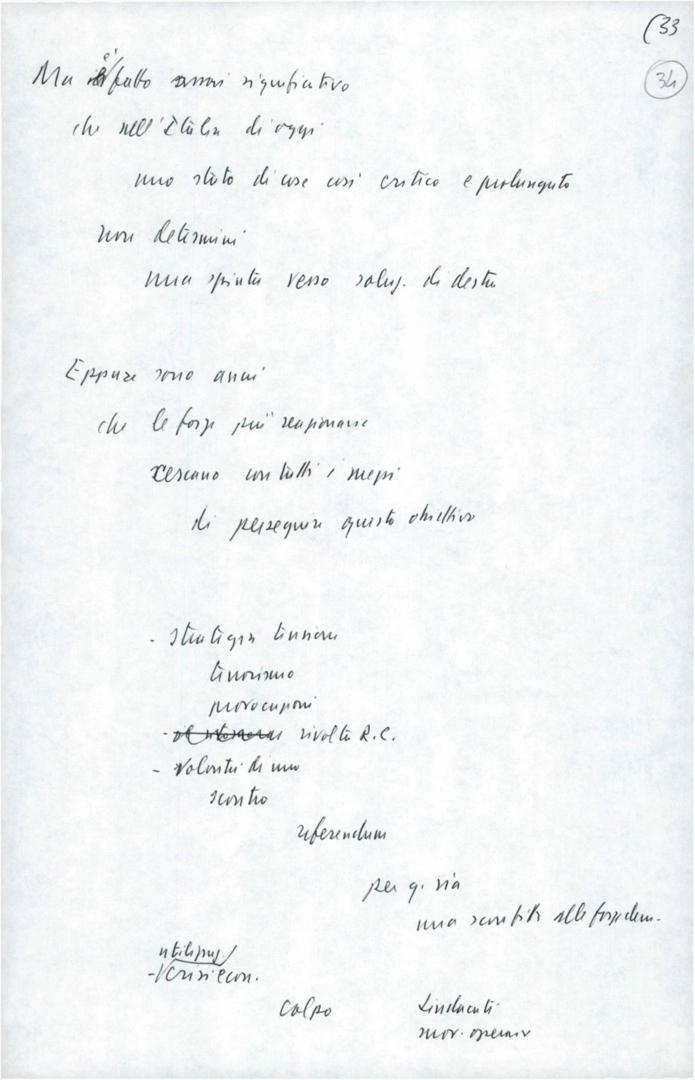 (33
34
Ma è fatto assai significativo
che nell'Italia di oggi
uno stato di cose così critico e prolungato
non determini
una spinta verso soluz. di destra
Eppure sono anni
che le forze più reazionarie
cercano con tutti i mezzi
di perseguire questo obiettivo
- strategia tensione
terrorismo
provocazioni
- rivolta R.C.
- volontà di uno
scontro
referendum
per q. via
una sconfitta alle forze dem.
utilizzaz.
- crisi econ.
colpo
sindacati
mov. operaio